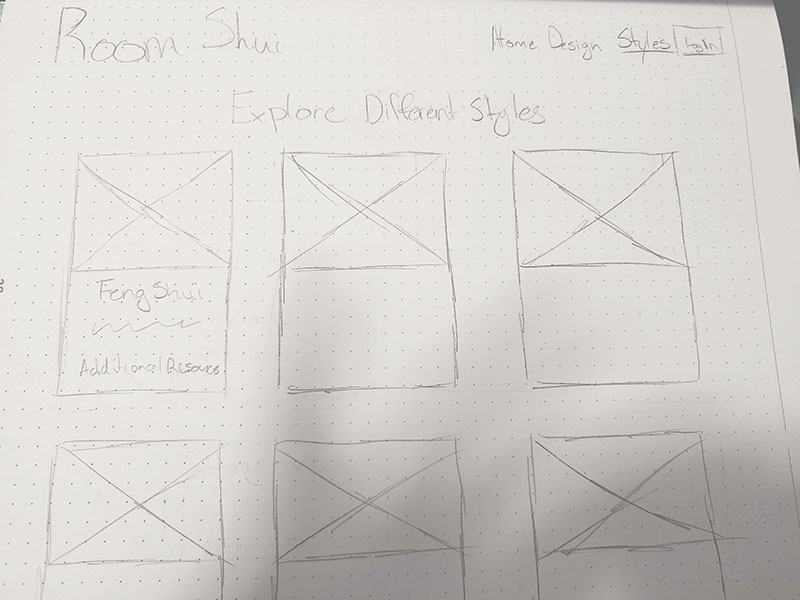 Room Shui
Home Design Styles Log In
Explore Different Styles
Feng Shui
Additional